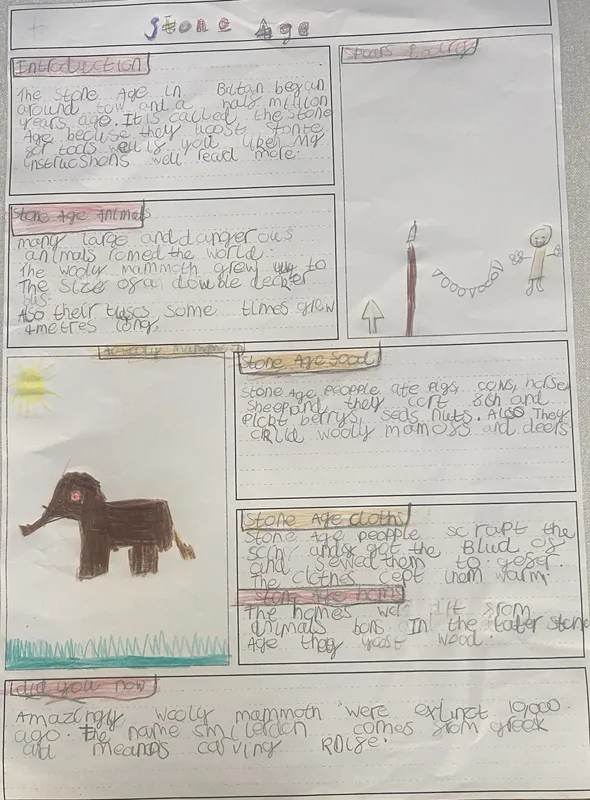 Stone Age
Introduction
The Stone Age in Britan began
around tow and a half million
years ago. It is called the Stone
Age because they uost stone
for tools well if you like My
instrucshons well read more.
Stone Age Animals
many large and dangerous
animals romed the world.
The wooly mammoth grew up to
The size of an double decker
bus.
Also their tuscs some times grew
4metres long,
Stone Age food
Stone Age peopple ate pigs, cows, horse
sheep and they cort fish and
pickt berrys seds nuts. Also They
wooly mamoss and deers
Stone Age cloths
Stone Age peopple scrapt the
scin and got the Blud of
and sewed them to gefer.
The clothes cept them warm.
Stone Age homs
The homes from
animals bons. In the later stone
Age thay yost wood.
did you now
Amazingly wooly mammoth were extinct 10,000
ago. the name smilerdon comes from greek
and means carving